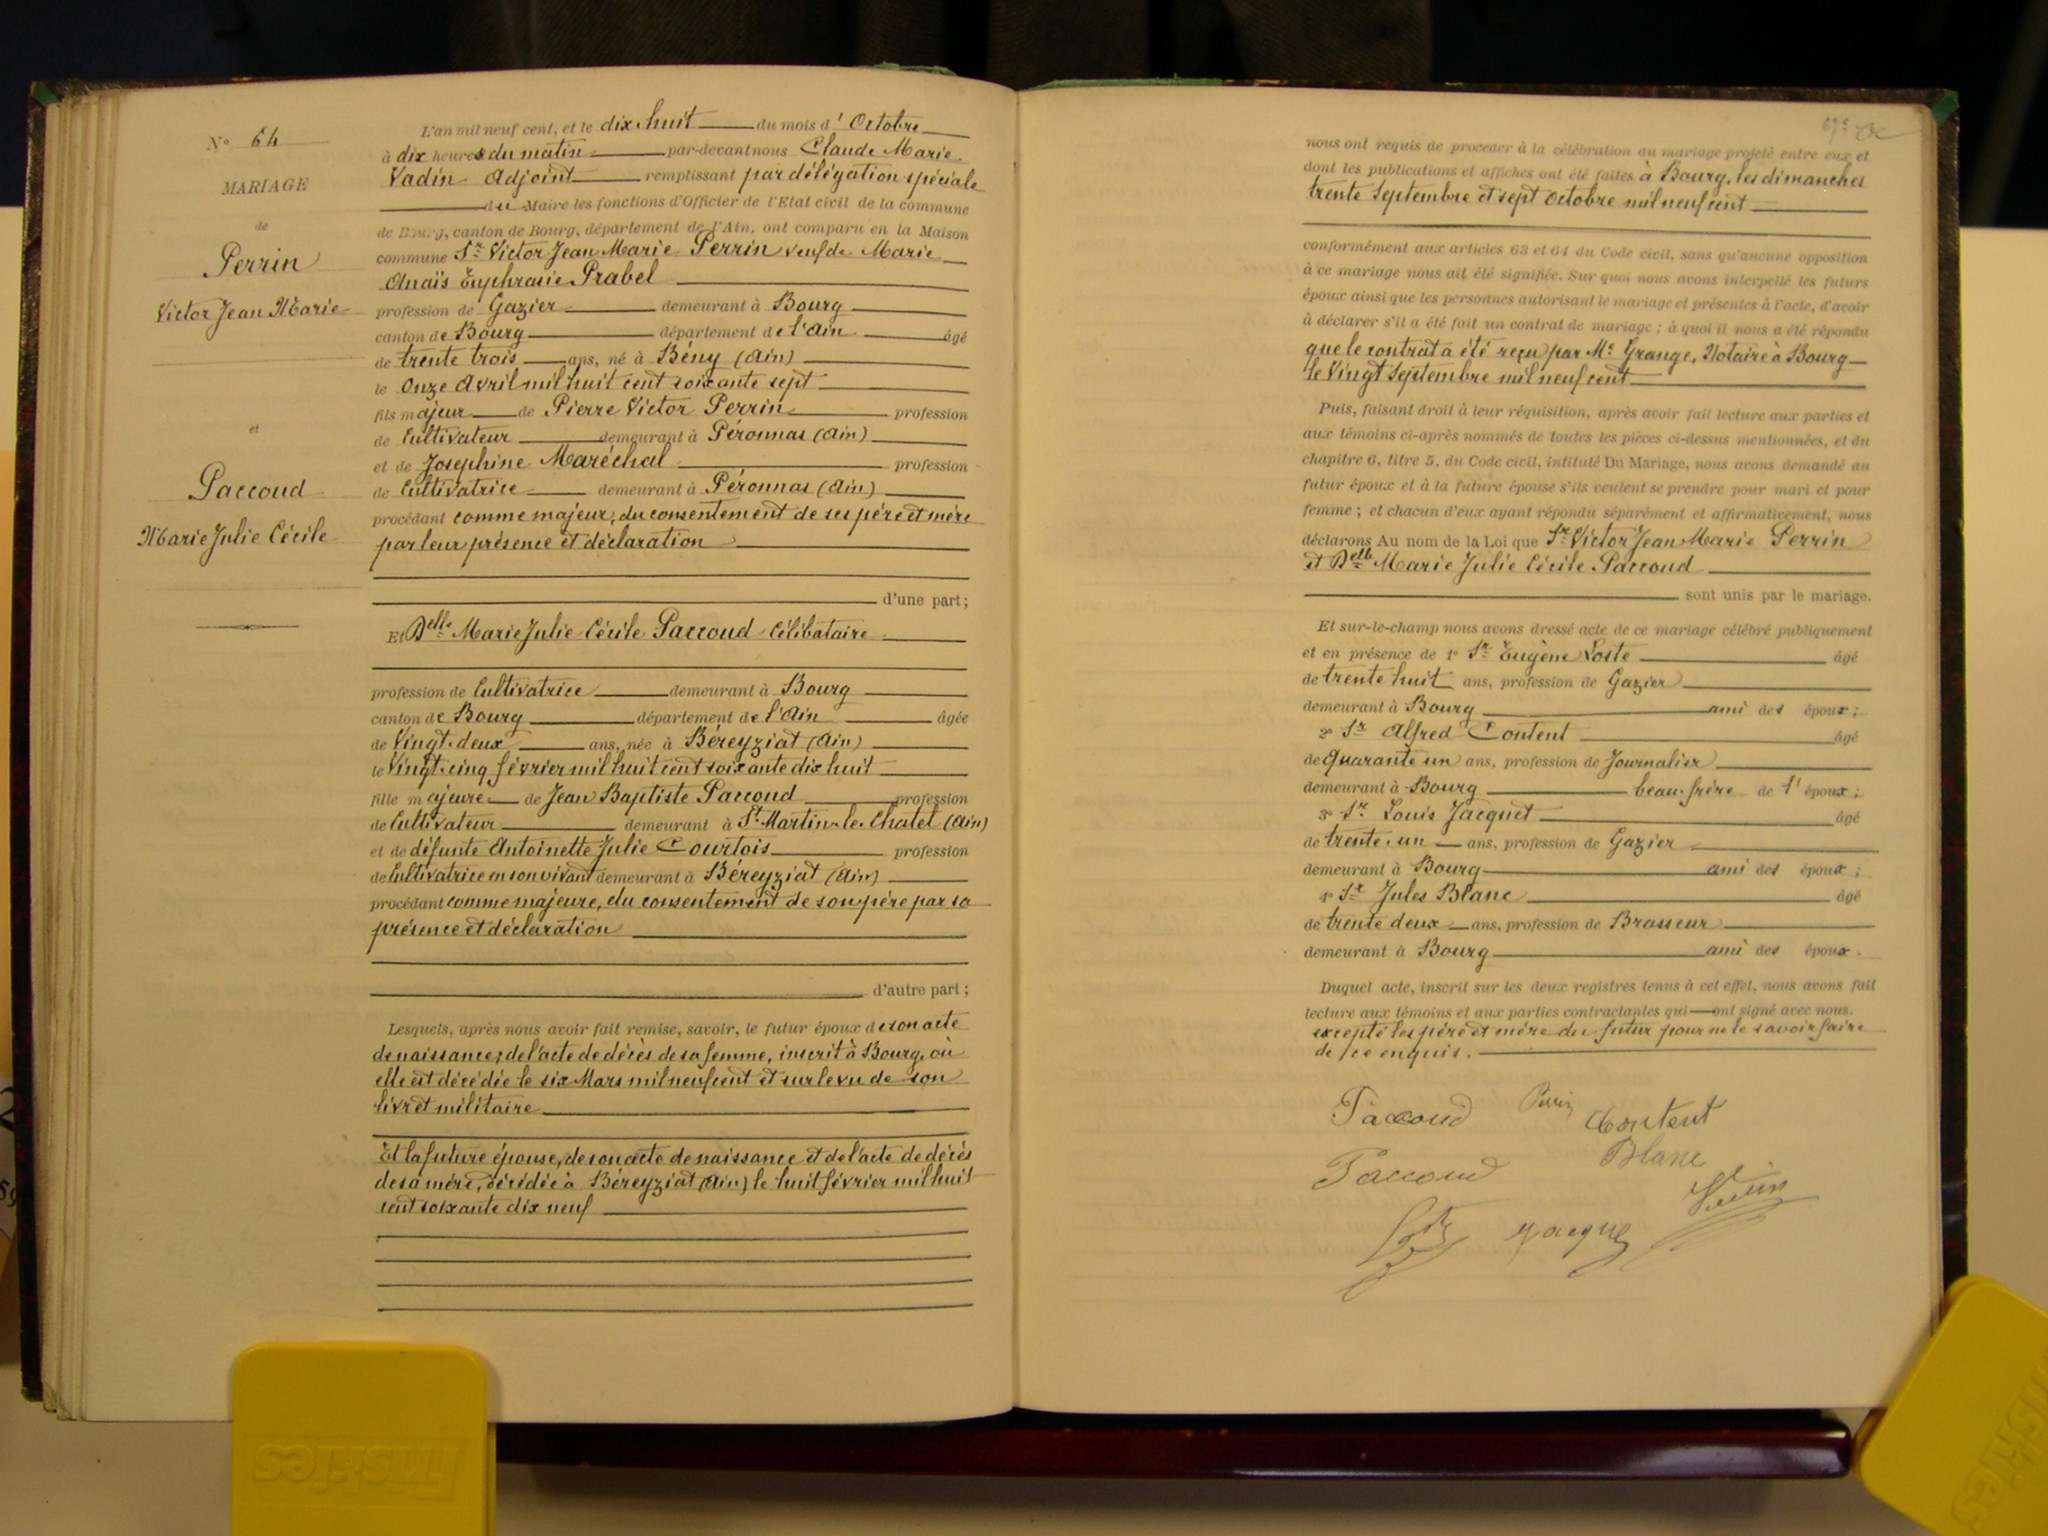 N° 64
MARIAGE
de
Perrin
Victor Jean Marie
et
Paccoud
Marie Julie Cécile
L'an mil neuf cent, et le dix huit du mois d'Octobre
à dix heures du matin par-devant nous Claude Marie
Vadin Adjoint remplissant par délégation spéciale
du Maire les fonctions d'Officier de l'Etat civil de la commune
de Bourg, canton de Bourg, département de l'Ain, ont comparu en la Maison
commune Sr Victor Jean Marie Perrin veuf de Marie
Anaïs Euphrasie Prabel
profession de Gazier demeurant à Bourg
canton de Bourg département de l'Ain âgé
de trente trois ans, né à Bény (Ain)
le Onze Avril mil huit cent soixante sept
fils majeur de Pierre Victor Perrin profession
de Cultivateur demeurant à Péronnas (Ain)
et de Josephine Maréchal profession
de Cultivatrice demeurant à Péronnas (Ain)
procédant comme majeur, du consentement de ses père et mère
par leur présence et déclaration
d'une part;
Et Delle Marie Julie Cécile Paccoud Célibataire
profession de Cultivatrice demeurant à Bourg
canton de Bourg département de l'Ain âgée
de Vingt-deux ans, née à Béreyziat (Ain)
le Vingt-cinq février mil huit cent soixante dix huit
fille majeure de Jean Baptiste Paccoud profession
de Cultivateur demeurant à St Martin-le-Chatel (Ain)
et de défunte Antoinette Julie Courtois profession
de Cultivatrice en son vivant demeurant à Béreyziat (Ain)
procédant comme majeure, du consentement de son père par sa
présence et déclaration
d'autre part;
Lesquels, après nous avoir fait remise, savoir, le futur époux de son acte
de naissance; de l'acte de décès de sa femme, inscrit à Bourg, où
elle est décédée le six Mars mil neuf cent et sur le vu de son
livret militaire
Et la future épouse, de son acte de naissance et de l'acte de décès
de sa mère, décédée à Béreyziat (Ain) le huit février mil huit
cent soixante dix neuf
nous ont requis de procéder à la célébration du mariage projeté entre eux et
dont les publications et affiches ont été faites à Bourg, les dimanches
trente Septembre et sept Octobre mil neuf cent
conformément aux articles 63 et 64 du Code civil, sans qu'aucune opposition
à ce mariage nous ait été signifiée. Sur quoi nous avons interpellé les futurs
époux ainsi que les personnes autorisant le mariage et présentes à l'acte, d'avoir
à déclarer s'il a été fait un contrat de mariage; à quoi il nous a été répondu
que le contrat a été reçu par Me Grange, Notaire à Bourg
le Vingt Septembre mil neuf cent
Puis, faisant droit à leur réquisition, après avoir fait lecture aux parties et
aux témoins ci-après nommés de toutes les pièces ci-dessus mentionnées, et du
chapitre 6, titre 5, du Code civil, intitulé Du Mariage, nous avons demandé au
futur époux et à la future épouse s'ils veulent se prendre pour mari et pour
femme; et chacun d'eux ayant répondu séparément et affirmativement, nous
déclarons Au nom de la Loi que Sr Victor Jean Marie Perrin
et Delle Marie Julie Cécile Paccoud
sont unis par le mariage.
Et sur-le-champ nous avons dressé acte de ce mariage célébré publiquement
et en présence de 1° Sr Eugène Loste âgé
de trente huit ans, profession de Gazier
demeurant à Bourg ami des époux;
2° Sr Alfred Content âgé
de Quarante un ans, profession de Journalier
demeurant à Bourg beau-frère de l'époux;
3° Sr Louis Jacquet âgé
de trente-un ans, profession de Gazier
demeurant à Bourg ami des époux;
4° Sr Jules Blanc âgé
de trente deux ans, profession de Brasseur
demeurant à Bourg ami des époux.
Duquel acte, inscrit sur les deux registres tenus à cet effet, nous avons fait
lecture aux témoins et aux parties contractantes qui ont signé avec nous.
excepté les père et mère du futur pour ne le savoir faire
de ce enquis.
Paccoud Perrin Content
Paccoud Blanc
Jacquet Vadin